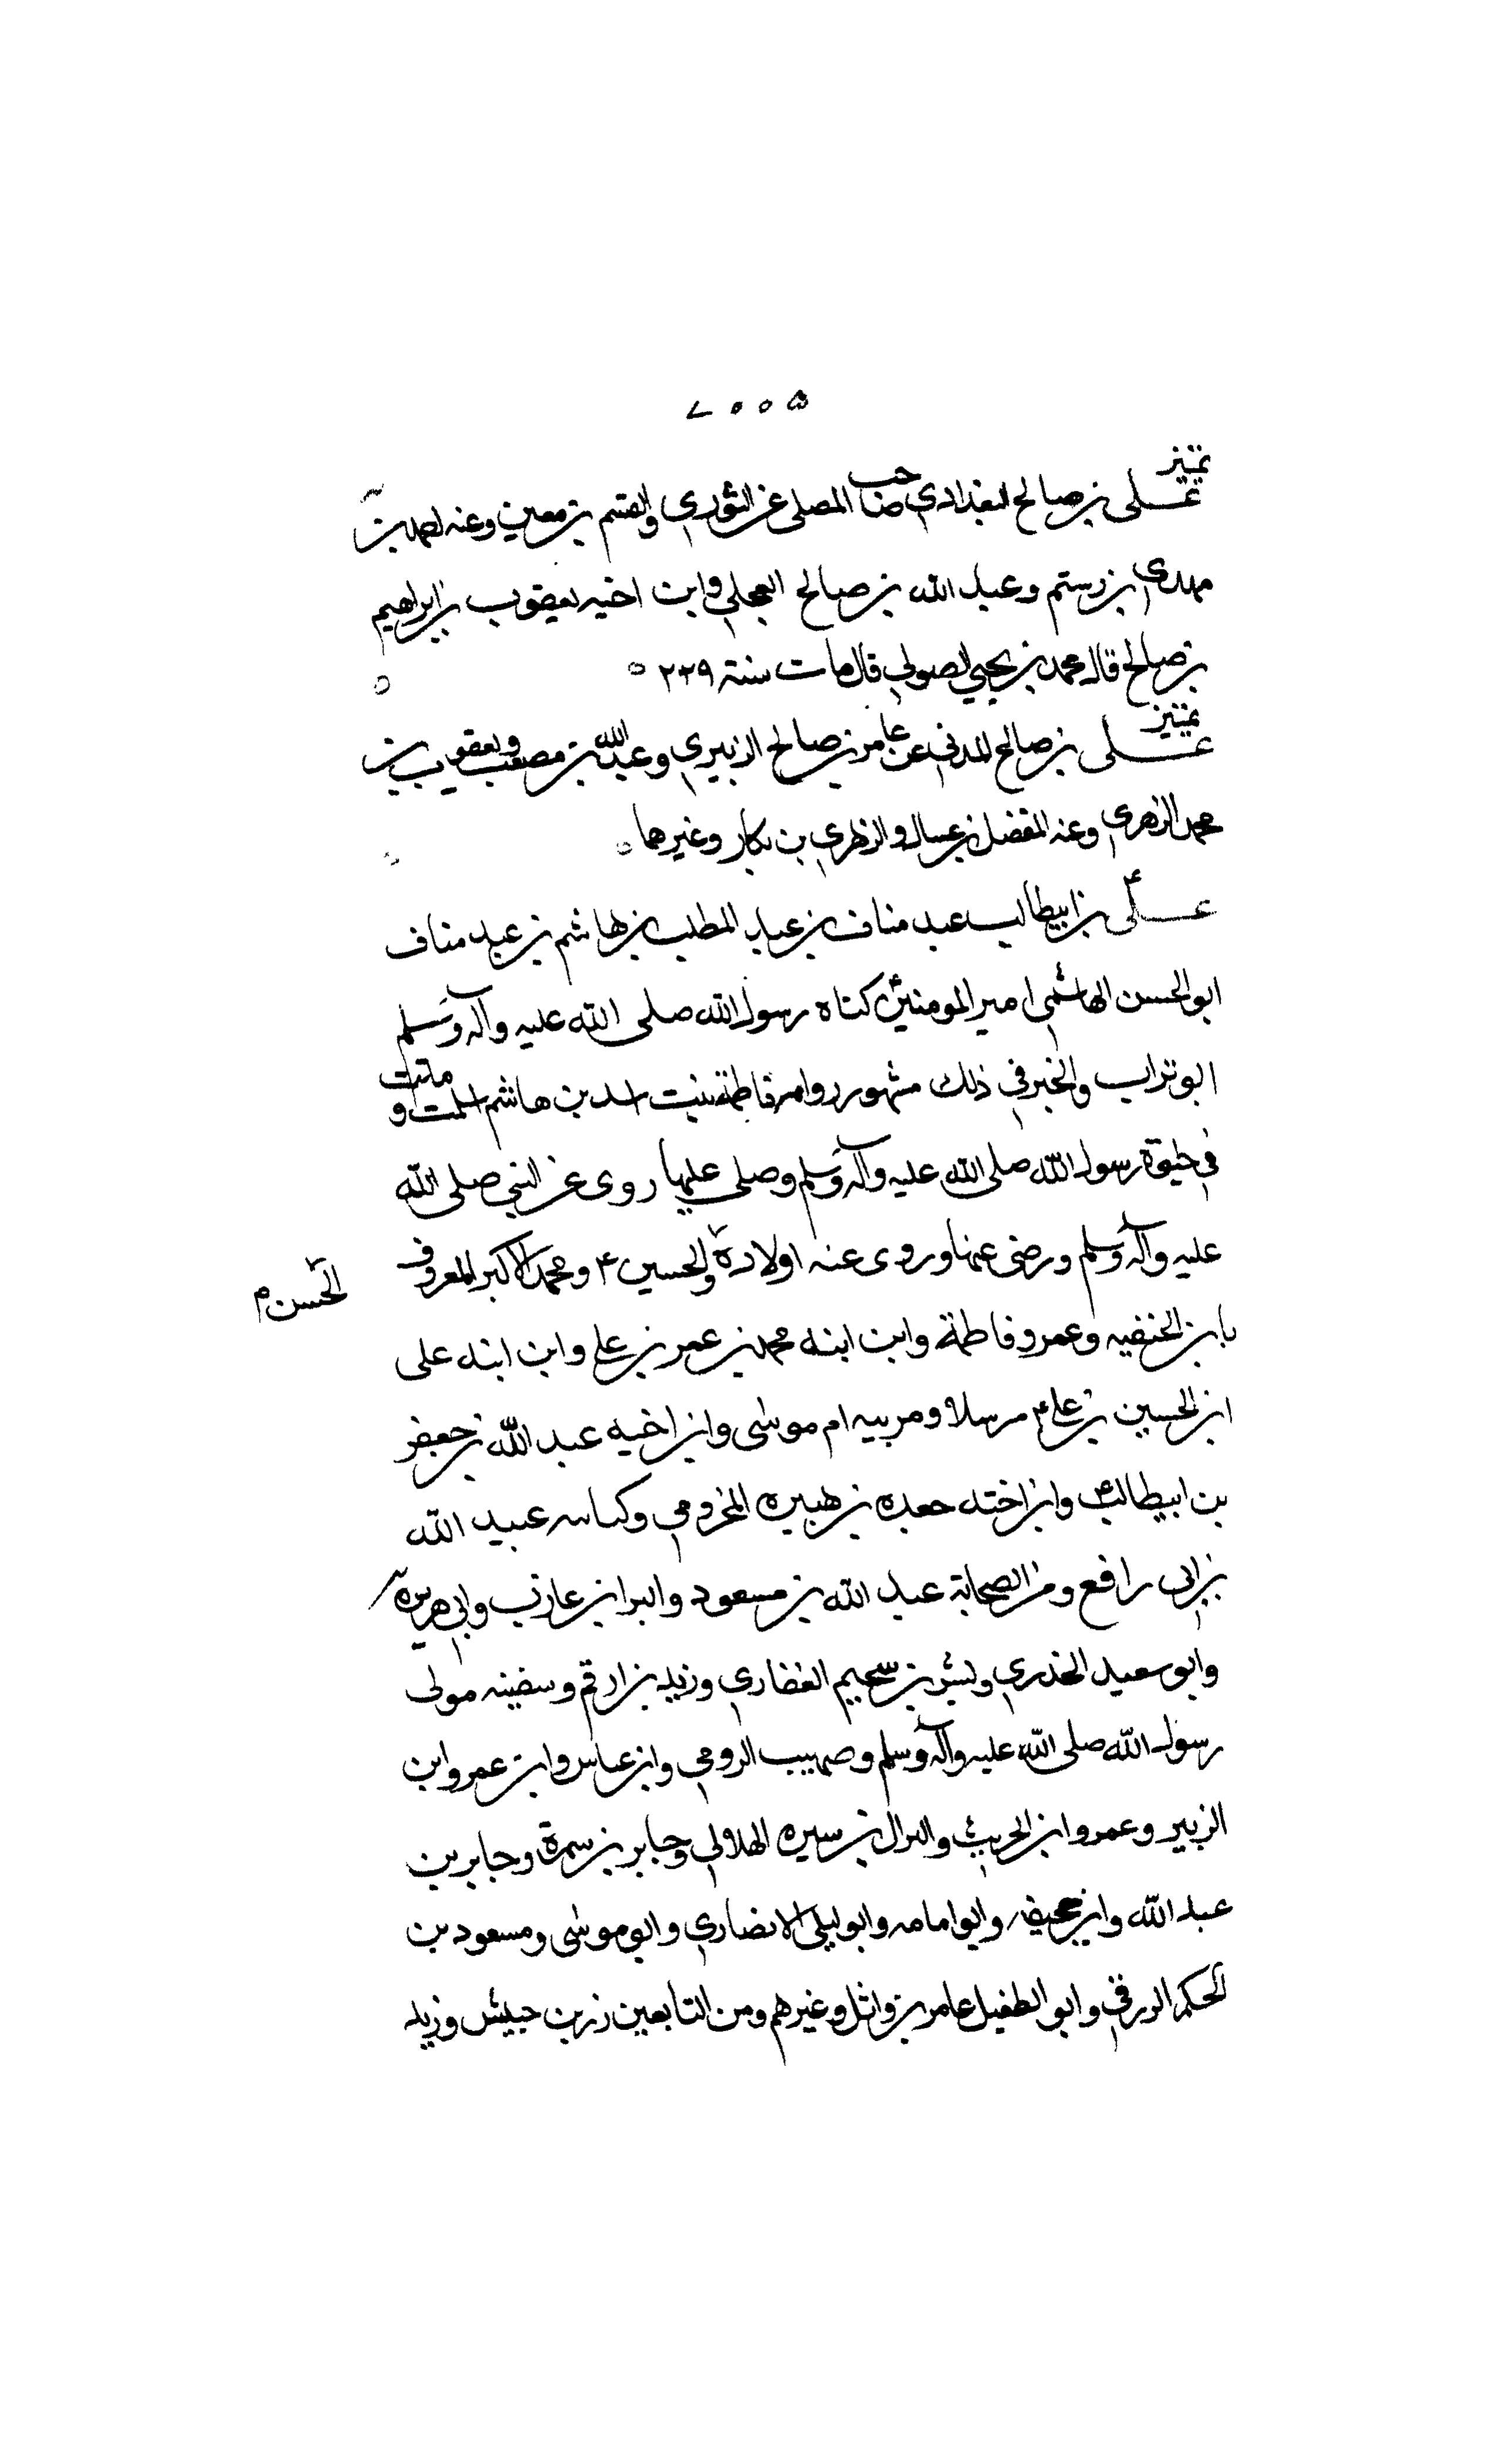 ٥٠٠٧
تمييز
علي بن صالح البغدادي صاحب المصلى عن الثوري والقسم بن معين وعنه احمد بن
مهدي بن رستم وعبد الله بن صالح العجلي وابن اخيه يعقوب بن ابراهيم
بن صالح قال محمد بن يحيي الصولي قال مات سنة ٢٢٩ ه
تمييز
علي بن صالح المدني عن عامر بن صالح الزبيري وعبد الله بن مصعب ويعقوب بن
محمد الزهري وعنه المفضل بن غسان والزهري بن بكار وغيرهما ه
ع
علي بن ابيطالب عبد مناف بن عبد المطلب بن هاشم بن عبد مناف
ابو الحسن الهاشمي امير المومنين كناه رسول الله صلى الله عليه وآله وسلم
ابو تراب والخبر في ذلك مشهور وامه فاطمة بنت اسد بن هاشم اسلمت وماتت
في حيوة رسول الله صلى الله عليه وآله وسلم وصلى عليها روى عن النبي صلى الله
عليه وآله وسلم ورضي عنها وروى عنه اولاده والحسين ٤ ومحمد الاكبر المعروف
الحسن م
بابن الحنفيه وعمر وفاطمة وابن ابنه محمد بن عمر بن علي وابن ابنه على
ابن الحسين بن علي م مرسلا ومربيه ام موسى وابن اخيه عبد الله بن جعفر
بن ابيطالب وابن اخته جعده بن هبيره المخزومي وكباسه عبيد الله
بن ابي رافع ومن الصحابة عبد الله بن مسعود والبرا بن عازب وابي هريره
وابو سعيد الخدري وبشر بن سحيم الغفاري وزيد بن ارقم وسفينه مولى
رسول الله صلى الله عليه وآله وسلم وصهيب الرومي وابن عباس وابن عمر وابن
الزبير وعمرو ابن الحريث والنزال بن سبره الهلالي وجابر بن سمرة وجابر بن
عبد الله وابن جحيفه وابو امامه وابو ليلى الانصاري وابو موسى ومسعود بن
الحكم الزرقي وابو الطفيل عامر بن واثل وغيرهم ومن التابعين زر بن حبيش وزيد